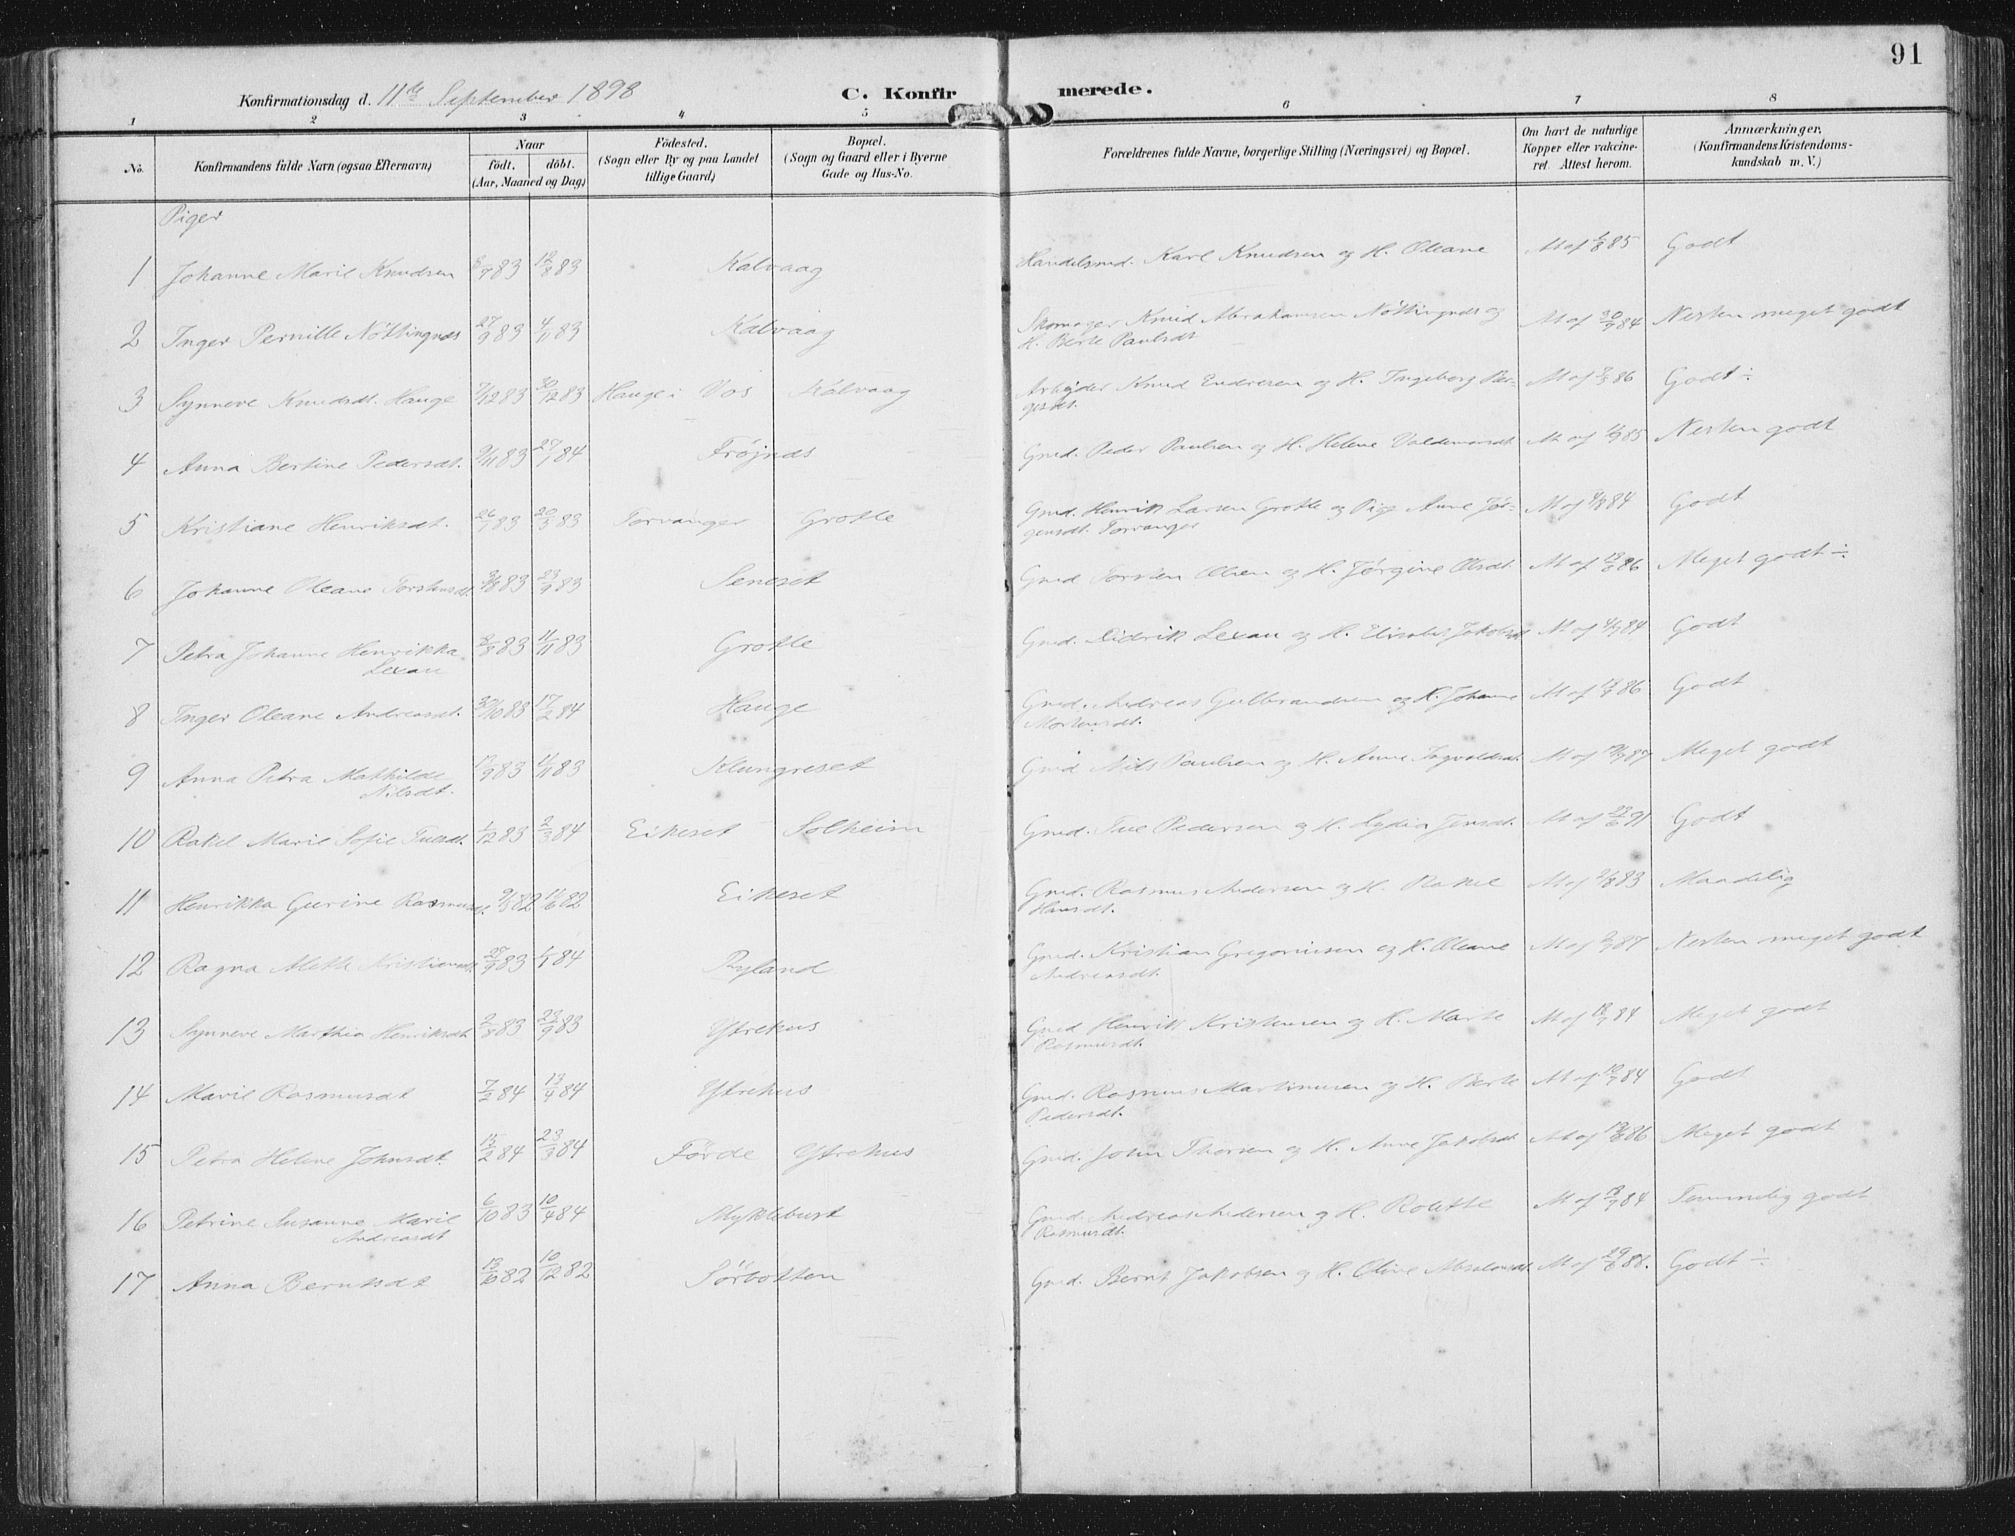 91
Konfirmationsdag d. 11te September 1898 C. Konfirmerede.
1 2 3 4 5 6 7 8
No. Konfirmandens fulde Navn (ogsaa Efternavn) Naar födt. döbt. (Aar, Maaned og Dag) Födested. (Sogn eller By og paa Landet tillige Gaard) Bopæl. (Sogn og Gaard eller i Byerne Gade og Hus-No. Forældrenes fulde Navne, borgerlige Stilling (Næringsvei) og Bopæl. Om havt de naturlige Kopper eller vakcineret. Attest herom. Anmærkninger, (Konfirmandens Kristendomskundskab m. V.)
Piger
1 Johanne Marie Knudsen 83 12/8 83 Kalvaag Handelsmd. Karl Knudsen og H. Oleane M af 1/8 85 Godt
2 Inger Pernille Nöttingnæs 27/9 83 4/11 83 Kalvaag Skomager Knud Abrahamsen Nöttingnæs og
H. Berte Paulsdt M af 84 Nesten meget godt
3 Synneve Knudsdt. Hauge 7/12 83 30/12 83 Hauge i Vos Kalvaag Arbejder Knud Endresen og H. Ingeborg Bør-
gesdt. M af 86 Godt ÷
4 Anna Bertine Pedersdt. 9/11 83 27/1 84 Fröjnæs Gmd. Peder Paulsen og H. Helene Valdemarsdt M af 85 Nesten godt
5 Kristiane Henriksdt. 26/1 83 20/3 83 Torvanger Grotle Gmd. Henrik Larsen Grotle og Pige Anne Jör-
gensdt. Torvanger M af 84 Godt
6 Johanne Oleane 83 23/9 83 Seneset Gmd Olsen og H. Jörgine Olsdt M af 86 Meget godt ÷
7 Petra Johanne Henrikka
Lexau 8/8 83 11/11 83 Grotle Gmd. Didrik Lexau og H. Elisabet Jakobsdt M af 84 Godt
8 Inger Oleane Andreasdt. 30/10 83 17/2 84 Hauge Gmd. Andreas Gulbrandsen og H. Johanne
Mortensdt. M af 86 Godt
9 Anna Petra Mathilde
Nilsdt. 83 11/11 83 Klungreset Gmd Nils Paulsen og H. Anne Ingvaldsdt. M af 87 Meget godt
10 Rakel Marie Sofie Tuesdt. 1/12 83 2/3 84 Eikeset Solheim Gmd. Tue Pedersen og H. Lydia Jensdt. M af 23/6 91 Godt
11 Henrikka Gurine Rasmusdt. 82 11/6 82 Eikeset Gmd. Rasmus Andersen og H. Rakel
Hansdt. M af 83 Maadelig
12 Ragna Alette Kristiansdt. 27/9 83 84 Ryland Gmd. Kristian Gregoriusen og H. Oleane
Andreasdt. M af 87 Nesten meget godt
13 Synneve Marthea Henriksdt 2/8 83 23/9 83 Ytrehus Gmd Henrik Kristensen og H. Marte
Rasmusdt. M af 84 Meget godt
14 Marie Rasmusdt 7/2 84 13/4 84 Ytrehus Gmd. Rasmus Martinusen og H. Berte
Pedersdt. M af 84 Godt
15 Petra Helene Johnsdt. 84 23/3 84 Förde Ytrehus Gmd. John Thorsen og H. Anne Jakobsdt M af 86 Meget godt
16 Petrine Susanne Marie
Andreasdt 6/10 83 10/4 84 Myklebust Gmd. Andreas Andersen og H. Rolette
Rasmusdt. M af 84 Temmelig godt
17 Anna Berntsdt 13/10 82 10/12 82 Sörbotten Gmd. Bernt Jakobsen og H. Oline Absalonsdt M af 29/6 88. Godt ÷